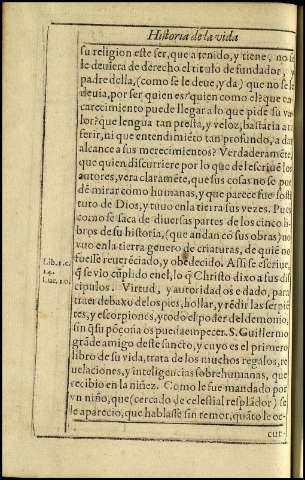 Historia de la vida
su religion este ser, que a tenido, y tiene, no se
le deuiera de derecho el titulo de fundador, y
padre della, (como se le deue, y da) que no se le
deuia, por ser quien es? quien como el? que en
carecimiento puede llegar a lo que pide su va
lor? que lengua tan presta, y veloz, bastaria a re
ferir, ni que entendimiẽto tan profundo, a dar
alcance a sus merecimientos? Verdaderamẽte,
que quien discurriere por lo que de el escriuẽ los
autores, vera claramẽte, que sus cosas no se pue
dẽ mirar como humanas, y que parece fue sosti
tuto de Dios, y tuuo en la tierra sus vezes. Pues
como se saca de diuersas partes de los cinco li-
bros de su historia, (que andan cõ sus obras) no
vuo en la tierra genero de criaturas, de quiẽ no
fuesse reuerẽciado, y obedecido. Assi se escriue,
q̃ se vio cũplido en el, lo q̃ Christo dixo a sus dis
cipulos. Virtud, y autoridad os e dado, para
traer debaxo de los pies, hollar, y rẽdir las serpiẽ
tes, y escorpiones, y todo el poder del demonio,
sin q̃ su põçoña os pueda empecer. S. Guillermo
grãde amigo deste sancto, y cuyo es el primero
libro de su vida, trata de los muchos regalos, re
uelaciones, y inteligencias sobre humanas, que
recibio en la niñez. Como le fue mandado por
vn niño, que (cercado de celestial resplãdor) se
le aparecio, que hablasse sin temor, quãto le oc-
cur-
Lib. 1. c.
14.
Luc. 10.